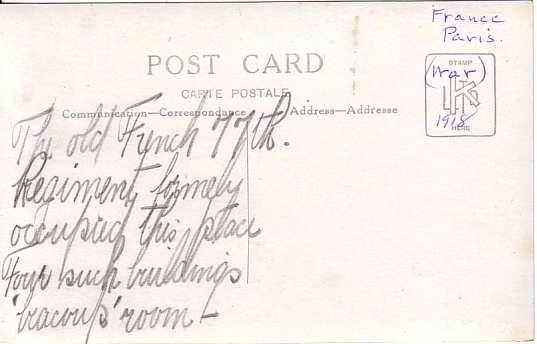 France
Paris.
POST CARD
CARTE POSTALE
Communication—Correspondance
Address—Addresse
STAMP
(War)
1918
HERE
The old French 77th.
Regiment, formely
occupied this place
Four such buildings
room -